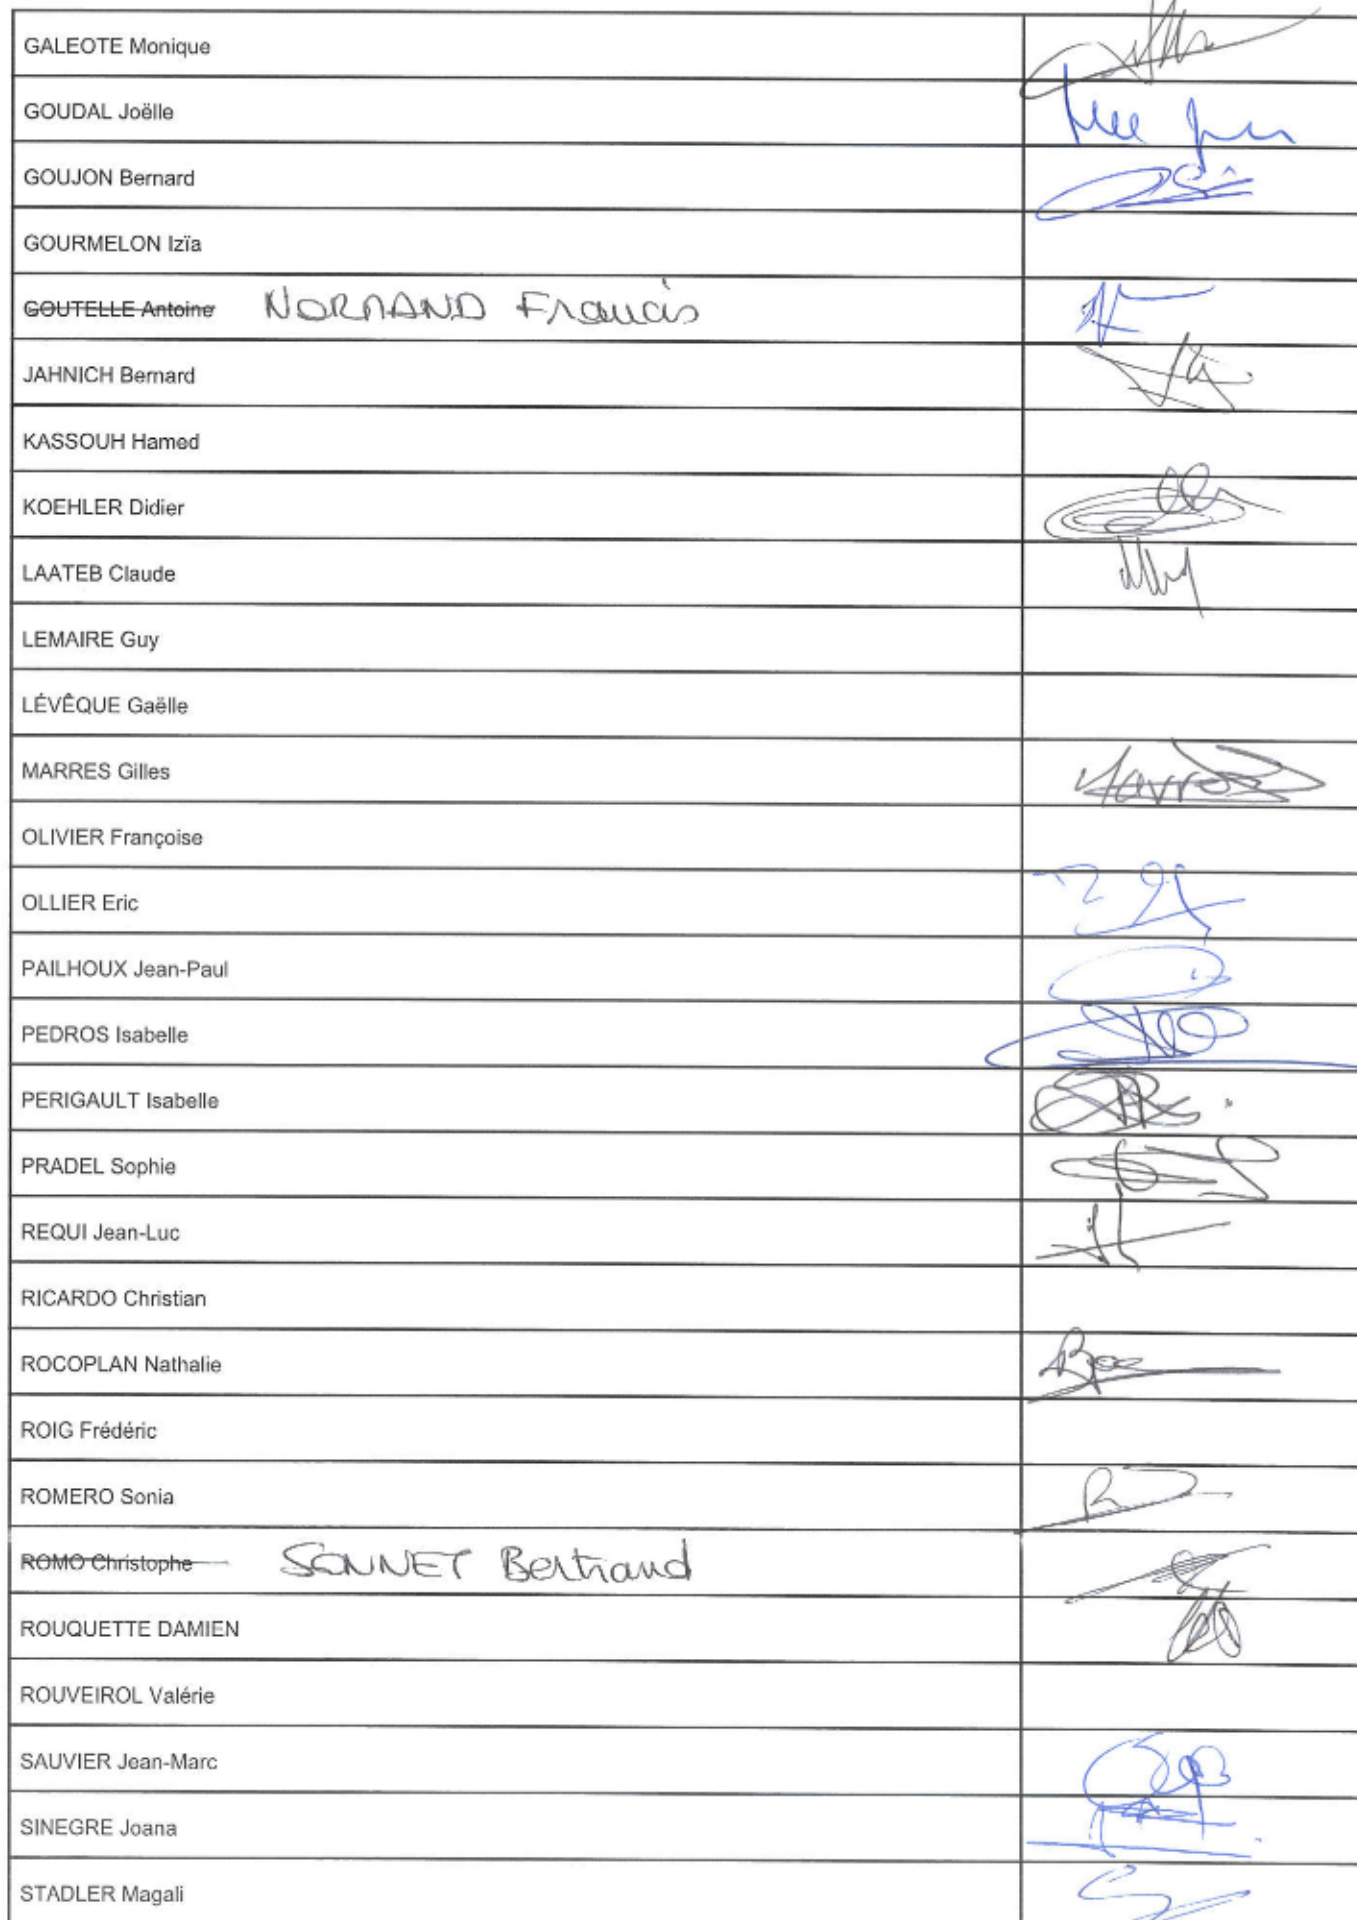 GALEOTE Monique
GOUDAL Joëlle
GOUJON Bernard
GOURMELON Izïa
GOUTELLE Antoine NORMAND Francis
JAHNICH Bernard
KASSOUH Hamed
KOEHLER Didier
LAATEB Claude
LEMAIRE Guy
LÉVÊQUE Gaëlle
MARRES Gilles
OLIVIER Françoise
OLLIER Eric
PAILHOUX Jean-Paul
PEDROS Isabelle
PERIGAULT Isabelle
PRADEL Sophie
REQUI Jean-Luc
RICARDO Christian
ROCOPLAN Nathalie
ROIG Frédéric
ROMERO Sonia
ROMO Christophe SONNET Bertrand
ROUQUETTE DAMIEN
ROUVEIROL Valérie
SAUVIER Jean-Marc
SINEGRE Joana
STADLER Magali